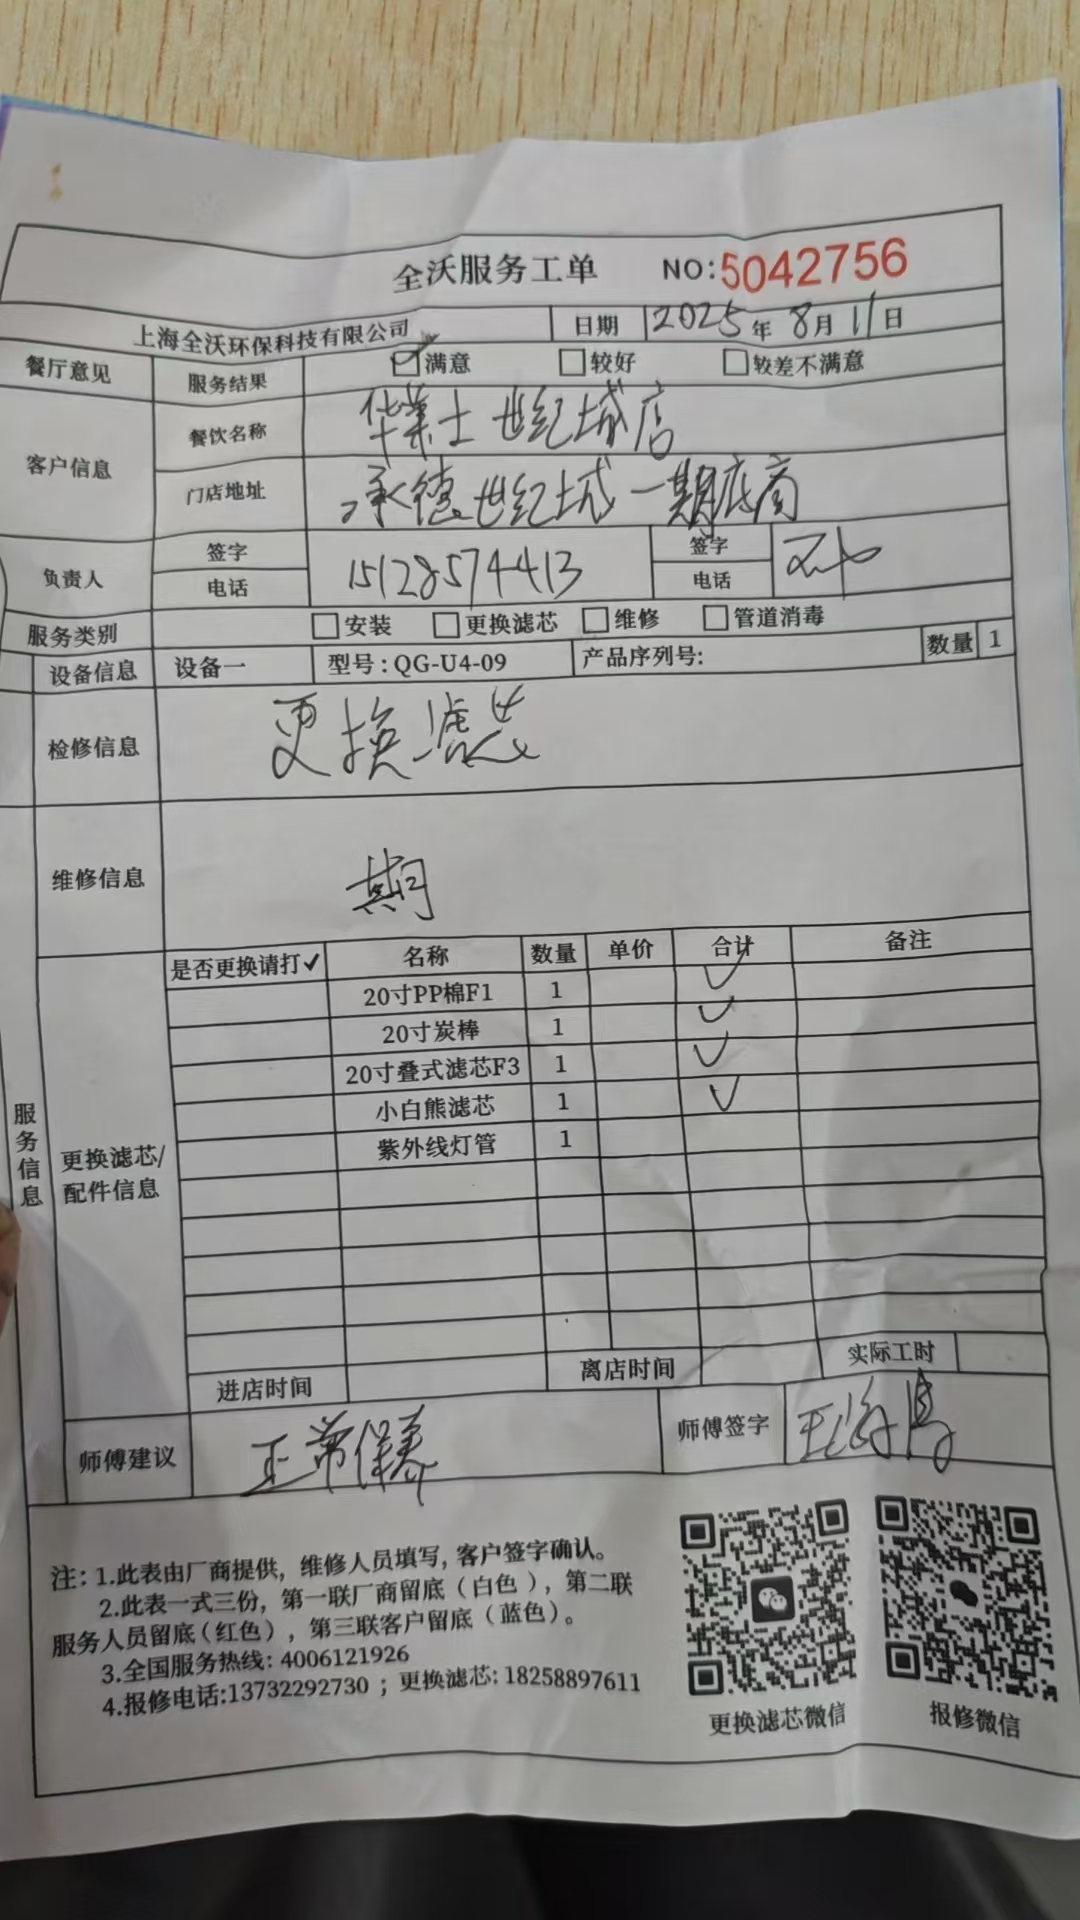 全沃服务工单 NO:5042756
上海全沃环保科技有限公司 日期 2025年8月11日
餐厅意见 服务结果 满意 较好 较差不满意
客户信息 餐饮名称 华莱士世纪城店
门店地址 承德世纪城一期底商
负责人 签字 电话 15128574413 签字 电话
服务类别 安装 更换滤芯 维修 管道消毒
设备信息 设备一 型号:QG-U4-09 产品序列号: 数量 1
检修信息 更换滤芯
维修信息 期
服务信息
更换滤芯/配件信息
是否更换请打✓ 名称 数量 单价 合计 备注
20寸PP棉F1 1 ✓
20寸炭棒 1 ✓
20寸叠式滤芯F3 1 ✓
小白熊滤芯 1 ✓
紫外线灯管 1
进店时间 离店时间 实际工时
师傅建议 正常保养 师傅签字
注：1.此表由厂商提供，维修人员填写，客户签字确认。
2.此表一式三份，第一联厂商留底（白色），第二联
服务人员留底（红色），第三联客户留底（蓝色）。
3.全国服务热线：4006121926
4.报修电话:13732292730；更换滤芯:18258897611
更换滤芯微信 报修微信